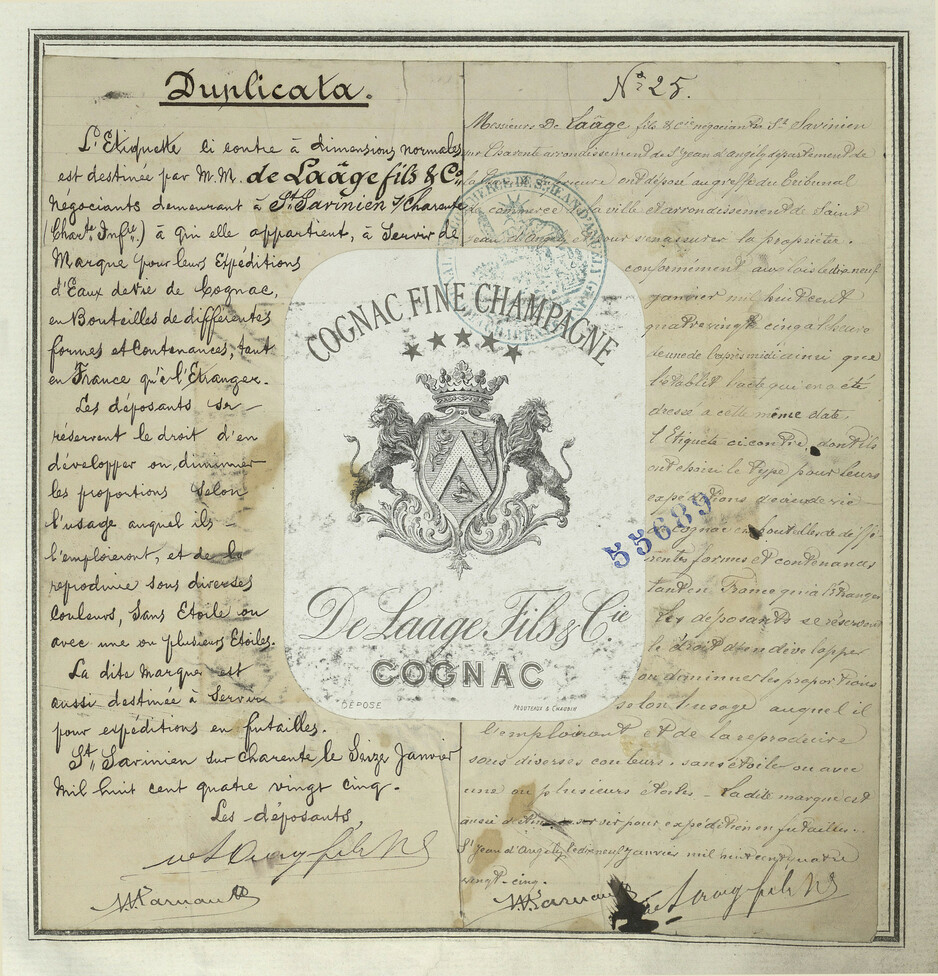 Duplicata.
L'Etiquette ci contre à dimensions normales
est destinée par M.M. de Laâge fils & Co.
négociants demeurant à St. Savinien s/Charente
(Charte. Infre.) à qui elle appartient, à Servir de
Marque pour leurs Expéditions
d'Eaux de Vie de Cognac,
en Bouteilles de différentes
formes et Contenances, tant
en France qu'à l'Etranger.
Les déposants se
réservent le droit d'en
développer ou diminuer
les proportions selon
l'usage auquel ils
l'emploieront, et de la
reproduire sous diverses
Couleurs, Sans Etoile ou
avec une ou plusieurs Etoiles.
La dite Marque est
aussi destinée à Servir
pour expéditions en futailles.
St. Savinien sur Charente le Seize Janvier
Mil huit cent quatre vingt cinq.
Les déposants,
COGNAC FINE CHAMPAGNE
De Laage Fils & Cie
COGNAC
DÉPOSÉ
PROUTEAUX & CHAUBIN
55689
No. 25.
Messieurs De Laâge fils & Cie négociants St. Savinien
sur Charente arrondissement de St. Jean d'angély département de
la Charente inférieure ont déposé au greffe du Tribunal
de commerce de la ville et arrondissement de Saint
Jean d'Angély pour s'en assurer la propriéter.
conformément aux lois le dix neuf
janvier mil huit cent
quatre vingt cinq à l'heure
de une de l'après midi ainsi que
l'établit l'acte qui en a été
dressé a cette même date.
l'Etiquete ci contre, dont ils
ont choisi le type pour leurs
expéditions d'eau de vie
de Cognac en bouteilles de diffé
rentes formes et contenances
tant en France qu'a l'étranger
Les déposants se réservent
le droit d'en développer
ou diminuer les proportions
selon l'usage auquel il
l'emploiront et de la reproduire
sous diverses couleurs, sans étoile ou avec
une ou plusieurs étoiles - La dite marque est
aussi destinée a servir pour expédition en futailles.
St. Jean d'Angély le dix neuf janvier mil huit cent quatre
vingt-cinq.